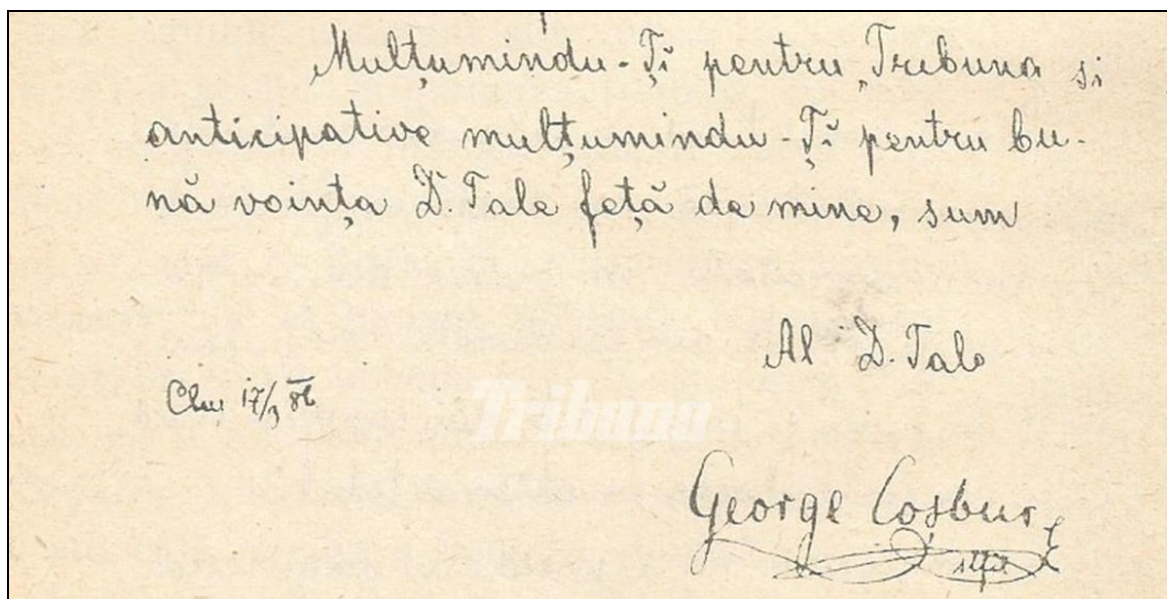 Mulțumindu-Ți pentru „Tribuna și
anticipative mulțumindu-Ți pentru bu-
nă voința D. Tale feță de mine, sum
Al D. Tale
Cluj 17/3 86
Tribuna
George Coșbuc